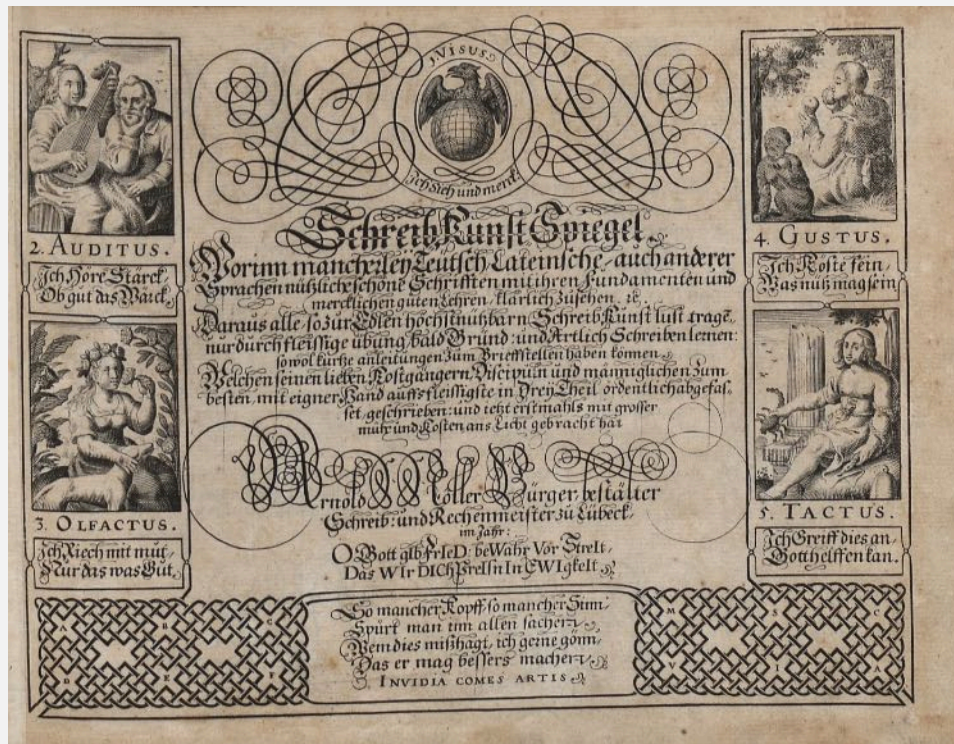 1. VISUS.
Ich Sich und merck.
2. AUDITUS.
Ich Höre Starck,
Ob gut das Marck.
3. OLFACTUS.
Ich Riech mit mut,
Nur das was Gut.
Schreib Kunst Spiegel.
Worinn mancherley Teutsch, Lateinsche, auch anderer
Sprachen nützliche schöne Schrifften mit ihren Fundamenten und
mercklichen guten Lehren, klärlich zusehen, ꝛc.
Daraus alle, so zur Edlen höchstnützbarn Schreib Kunst lust tragē,
nur durch fleissige übung, bald Gründ: und Artlich Schreiben lernen:
sowol kurtze anleitungen zum Brieffstellen haben können.
Welchen seinen lieben Kostgängern, Discipuln und männiglichen zum
besten, mit eigner Hand auffs fleissigste in Drey Theil ordentlich abgefas-
set, geschrieben: und ietzt erstmahls mit grosser
müh und Kosten ans Licht gebracht hat
Arnold Möller Bürger, bestälter
Schreib: und Rechenmeister zu Lübeck,
im Jahr:
O Gott gIb frIeD: beWahr Vor StreIt,
Das WIr DICh preIsn In EWIgkeIt.
4. GUSTUS.
Ich Koste fein,
Was nütz mag sein
5. TACTUS.
Ich Greiff dies an,
Gott helffen kan.
A B C
D E F
So mancher Kopff, so mancher Sinn,
Spürt man inn allen sachen,
Wem dies mißhagt, ich gerne gönn,
Das er mag bessers machen.
INVIDIA COMES ARTIS
M S C
V I A